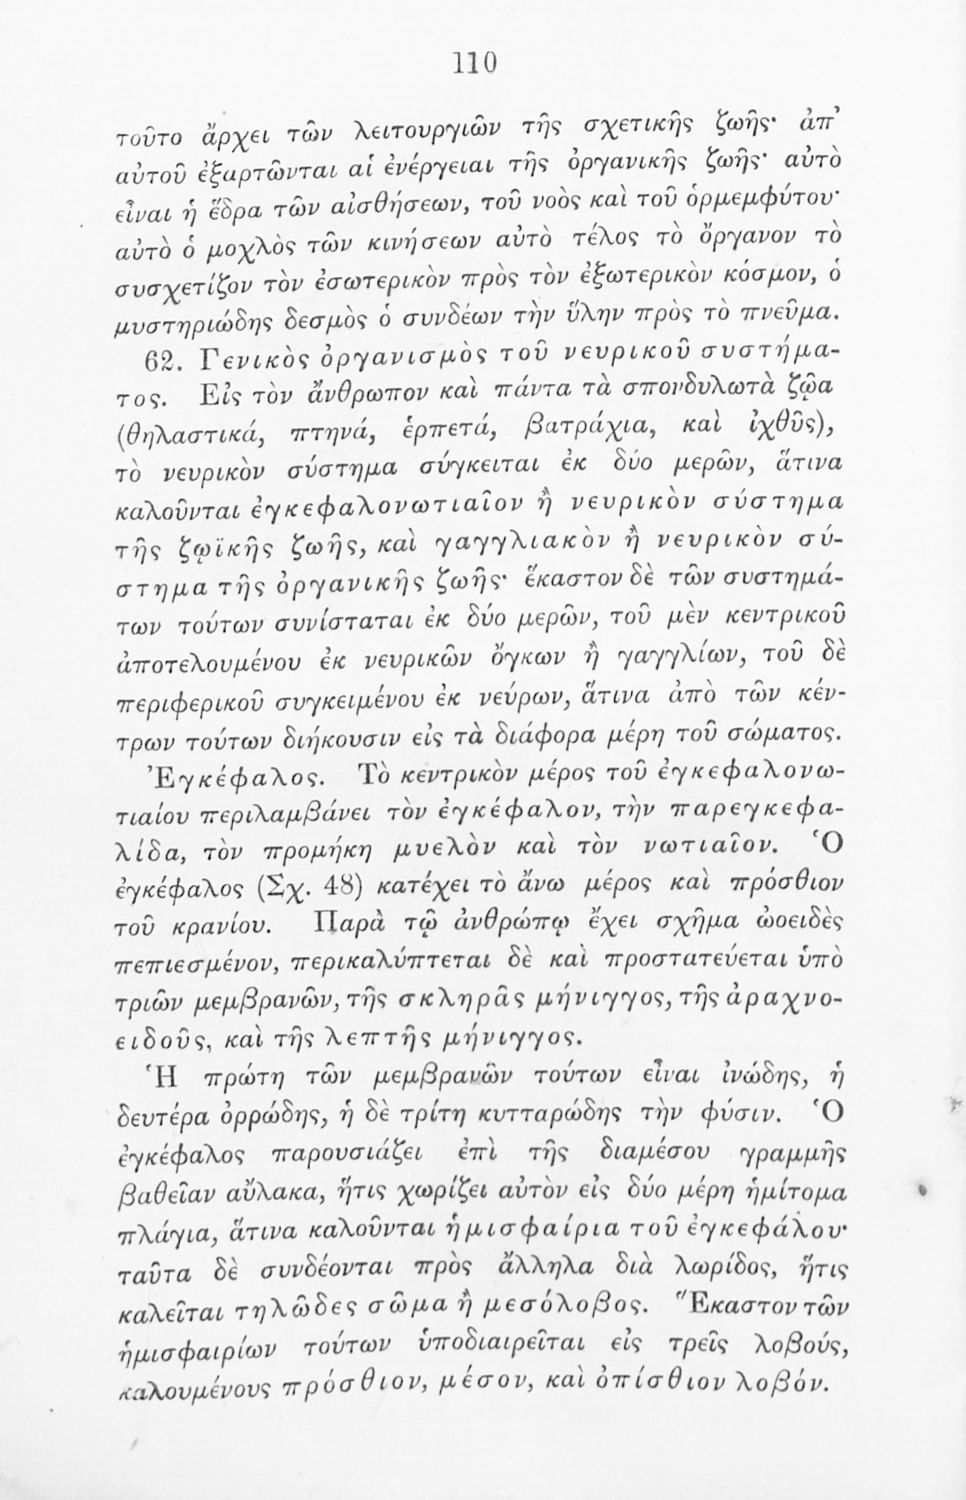 110
τοῦτο ἄρχει τῶν λειτουργιῶν τῆς σχετικῆς ζωῆς· ἀπ’
αὐτοῦ ἐξαρτῶνται αἱ ἐνέργειαι τῆς ὀργανικῆς ζωῆς· αὐτὸ
εἶναι ἡ ἕδρα τῶν αἰσθήσεων, τοῦ νοὸς καὶ τοῦ ὁρμεμφύτου·
αὐτὸ ὁ μοχλὸς τῶν κινήσεων αὐτὸ τέλος τὸ ὄργανον τὸ
συσχετίζον τὸν ἐσωτερικὸν πρὸς τὸν ἐξωτερικὸν κόσμον, ὁ
μυστηριώδης δεσμὸς ὁ συνδέων τὴν ὕλην πρὸς τὸ πνεῦμα.
62. Γενικὸς ὀργανισμὸς τοῦ νευρικοῦ συστήμα-
τος. Εἰς τὸν ἄνθρωπον καὶ πάντα τὰ σπονδυλωτὰ ζῷα
(θηλαστικά, πτηνά, ἑρπετά, βατράχια, καὶ ἰχθῦς),
τὸ νευρικὸν σύστημα σύγκειται ἐκ δύο μερῶν, ἅτινα
καλοῦνται ἐγκεφαλονωτιαῖον ἢ νευρικὸν σύστημα
τῆς ζῳϊκῆς ζωῆς, καὶ γαγγλιακὸν ἢ νευρικὸν σύ-
στημα τῆς ὀργανικῆς ζωῆς· ἕκαστον δὲ τῶν συστημά-
των τούτων συνίσταται ἐκ δύο μερῶν, τοῦ μὲν κεντρικοῦ
ἀποτελουμένου ἐκ νευρικῶν ὄγκων ἢ γαγγλίων, τοῦ δὲ
περιφερικοῦ συγκειμένου ἐκ νεύρων, ἅτινα ἀπὸ τῶν κέν-
τρων τούτων διήκουσιν εἰς τὰ διάφορα μέρη τοῦ σώματος.
Ἐγκέφαλος. Τὸ κεντρικὸν μέρος τοῦ ἐγκεφαλονω-
τιαίου περιλαμβάνει τὸν ἐγκέφαλον, τὴν παρεγκεφα-
λίδα, τὸν προμήκη μυελὸν καὶ τὸν νωτιαῖον. Ὁ
ἐγκέφαλος (Σχ. 48) κατέχει τὸ ἄνω μέρος καὶ πρόσθιον
τοῦ κρανίου. Παρὰ τῷ ἀνθρώπῳ ἔχει σχῆμα ὠοειδὲς
πεπιεσμένον, περικαλύπτεται δὲ καὶ προστατεύεται ὑπὸ
τριῶν μεμβρανῶν, τῆς σκληρᾶς μήνιγγος, τῆς ἀραχνο-
ειδοῦς, καὶ τῆς λεπτῆς μήνιγγος.
Ἡ πρώτη τῶν μεμβρανῶν τούτων εἶναι ἰνώδης, ἡ
δευτέρα ὀρρώδης, ἡ δὲ τρίτη κυτταρώδης τὴν φύσιν. Ὁ
ἐγκέφαλος παρουσιάζει ἐπὶ τῆς διαμέσου γραμμῆς
βαθεῖαν αὔλακα, ἥτις χωρίζει αὐτὸν εἰς δύο μέρη ἡμίτομα
πλάγια, ἅτινα καλοῦνται ἡμισφαίρια τοῦ ἐγκεφάλου·
ταῦτα δὲ συνδέονται πρὸς ἄλληλα διὰ λωρίδος, ἥτις
καλεῖται τηλῶδες σῶμα ἢ μεσόλοβος. Ἕκαστον τῶν
ἡμισφαιρίων τούτων ὑποδιαιρεῖται εἰς τρεῖς λοβούς,
καλουμένους πρόσθιον, μέσον, καὶ ὀπίσθιον λοβόν.